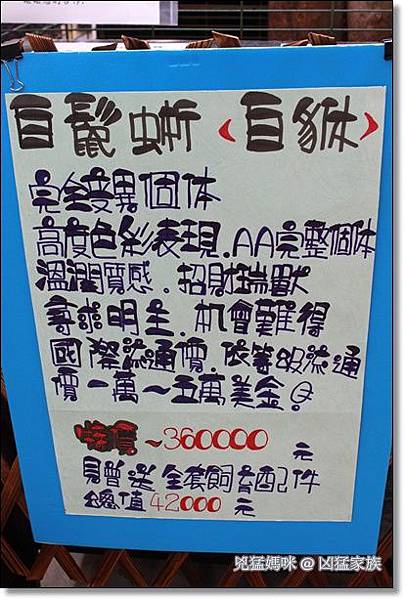 白鬣蜥〈白貅〉
完全變異個体
高度色彩表現.AA完整個体
溫潤質感.招財瑞獸
尋識明主.机會難得
國際流通價.依等級流通
價一萬~五萬美金。
特價~360000元
見贈送全套飼育配件
總值42000元
兇猛媽咪@凶猛家族